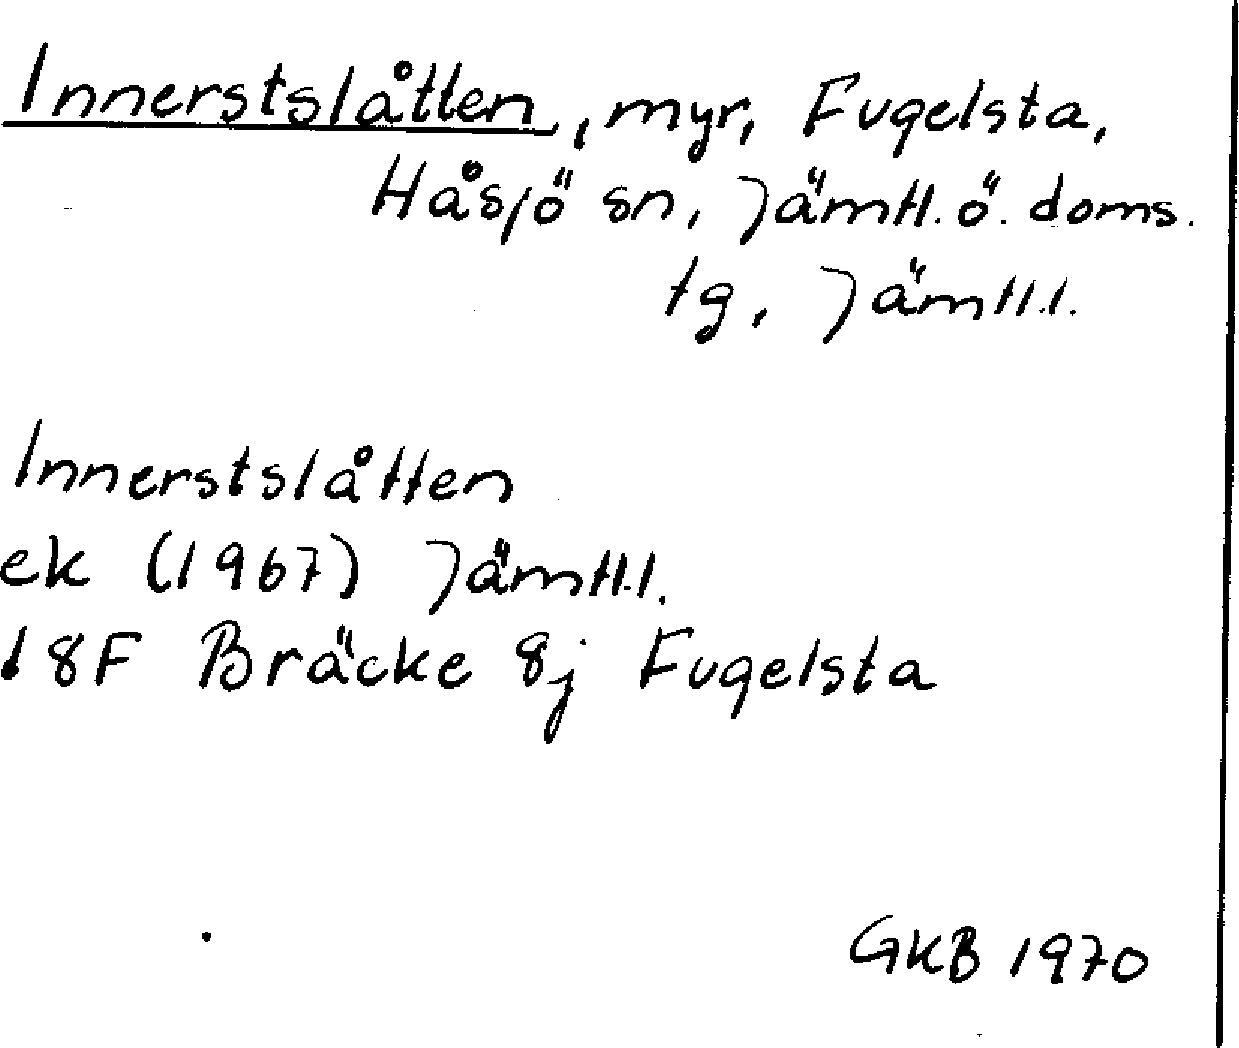 Innerstslåtten, myr, Fugelsta,
Håsjö sn, Jämtl. ö. doms.
tg, Jämtl.l.
Innerstslåtten
ek (1967) Jämtl.l.
18F Bräcke 8j Fugelsta
GKB 1970